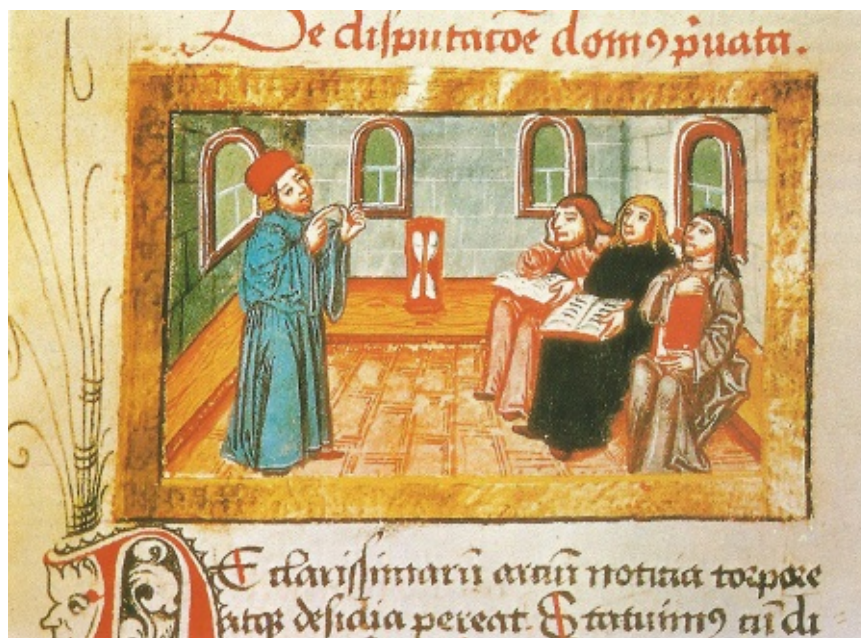 De disputacōe dom⁹ p̄uata.
NE clarissimarū arciū noticia torpore
atqꝫ desidia pereat. Statuim⁹ cū di